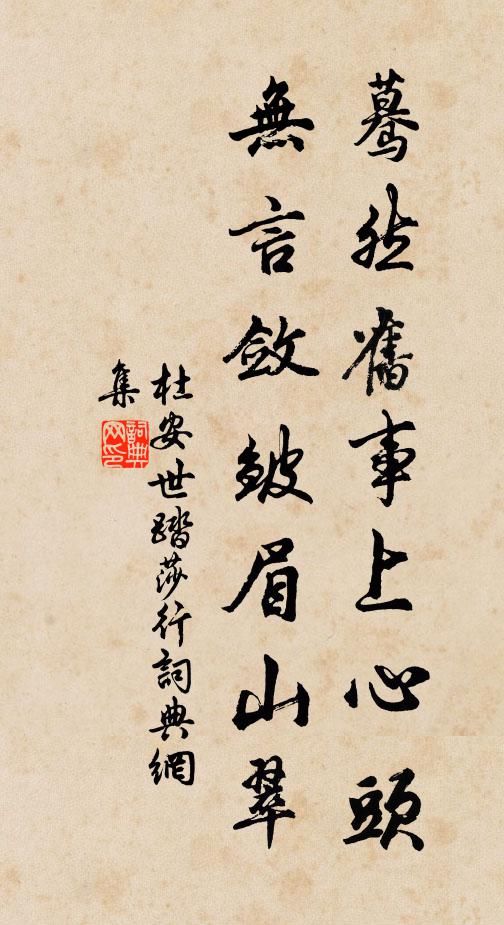 驀然舊事上心頭
無言斂皺眉山翠
杜安世踏莎行詞典網
集
詞典
网印